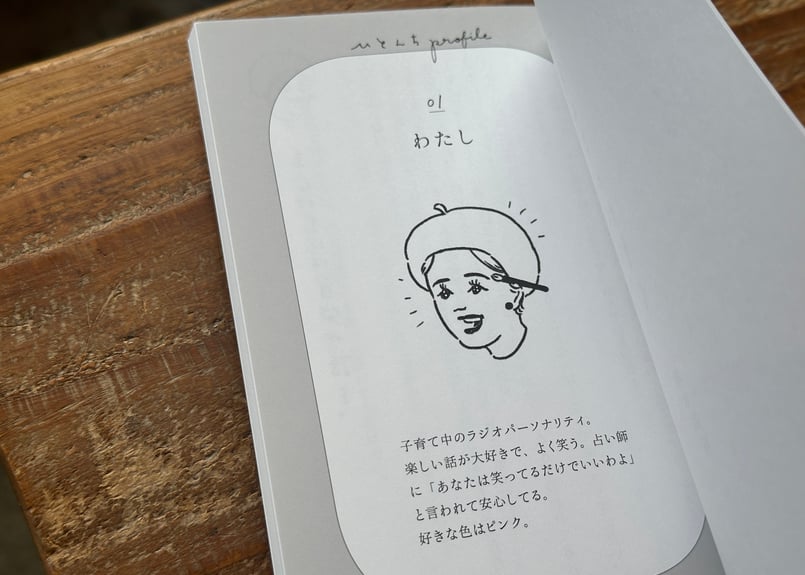 いとんち profile
01
わたし
子育て中のラジオパーソナリティ。
楽しい話が大好きで、よく笑う。占い師
に「あなたは笑ってるだけでいいわよ」
と言われて安心してる。
好きな色はピンク。